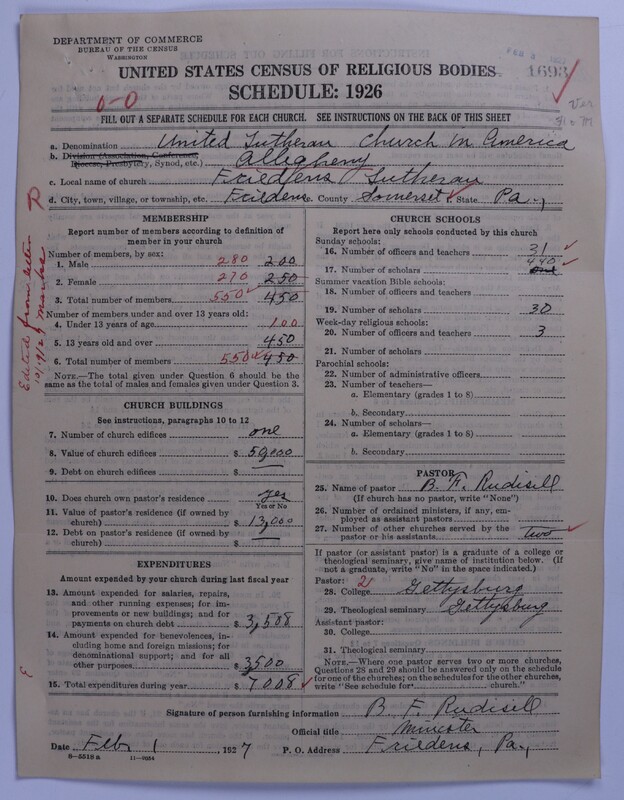 DEPARTMENT OF COMMERCE
BUREAU OF THE CENSUS
WASHINGTON
1693
UNITED STATES CENSUS OF RELIGIOUS BODIES
SCHEDULE: 1926
0-0
FILL OUT A SEPARATE SCHEDULE FOR EACH CHURCH. SEE INSTRUCTIONS ON THE BACK OF THIS SHEET
a. Denomination United Lutheran Church in America
b. Division (Association, Conference, Diocese, Presbytery, Synod, etc.) Allegheny
c. Local name of church Friedens Lutheran
d. City, town, village, or township, etc. Friedens e. County Somerset f. State Pa.,
MEMBERSHIP
Report number of members according to definition of member in your church
Number of members, by sex:
1. Male 280 200
2. Female 270 250
3. Total number of members 550 450
Number of members under and over 13 years old:
4. Under 13 years of age 100
5. 13 years old and over 450
6. Total number of members 550 450
NOTE.—The total given under Question 6 should be the same as the total of males and females given under Question 3.
CHURCH BUILDINGS
See instructions, paragraphs 10 to 12
7. Number of church edifices one
8. Value of church edifices $ 50,000
9. Debt on church edifices $ —
10. Does church own pastor's residence yes
Yes or No
11. Value of pastor's residence (if owned by church) $ 13,000
12. Debt on pastor's residence (if owned by church) $ —
EXPENDITURES
Amount expended by your church during last fiscal year
13. Amount expended for salaries, repairs, and other running expenses; for improvements or new buildings; and for payments on church debt $ 3,508
14. Amount expended for benevolences, including home and foreign missions; for denominational support; and for all other purposes $ 3500
15. Total expenditures during year $ 7008
CHURCH SCHOOLS
Report here only schools conducted by this church
Sunday schools:
16. Number of officers and teachers 31
17. Number of scholars 440
Summer vacation Bible schools:
18. Number of officers and teachers
19. Number of scholars 30
Week-day religious schools:
20. Number of officers and teachers 3
21. Number of scholars
Parochial schools:
22. Number of administrative officers
23. Number of teachers—
a. Elementary (grades 1 to 8)
b. Secondary
24. Number of scholars—
a. Elementary (grades 1 to 8)
b. Secondary
PASTOR
25. Name of pastor B. F. Rudisill
(If church has no pastor, write "None")
26. Number of ordained ministers, if any, employed as assistant pastors
27. Number of other churches served by the pastor or his assistants two
If pastor (or assistant pastor) is a graduate of a college or theological seminary, give name of institution below. (If not a graduate, write "No" in the space indicated.)
Pastor: 2
28. College Gettysburg
29. Theological seminary Gettysburg
Assistant pastor:
30. College
31. Theological seminary
NOTE.—Where one pastor serves two or more churches, Questions 28 and 29 should be answered only on the schedule for one of the churches; on the schedules for the other churches, write "See schedule for church."
Signature of person furnishing information B. F. Rudisill
Official title Minister
Date Feb 1 1927 P. O. Address Friedens, Pa.,
8-5518 a 11-9034
Edited from letter